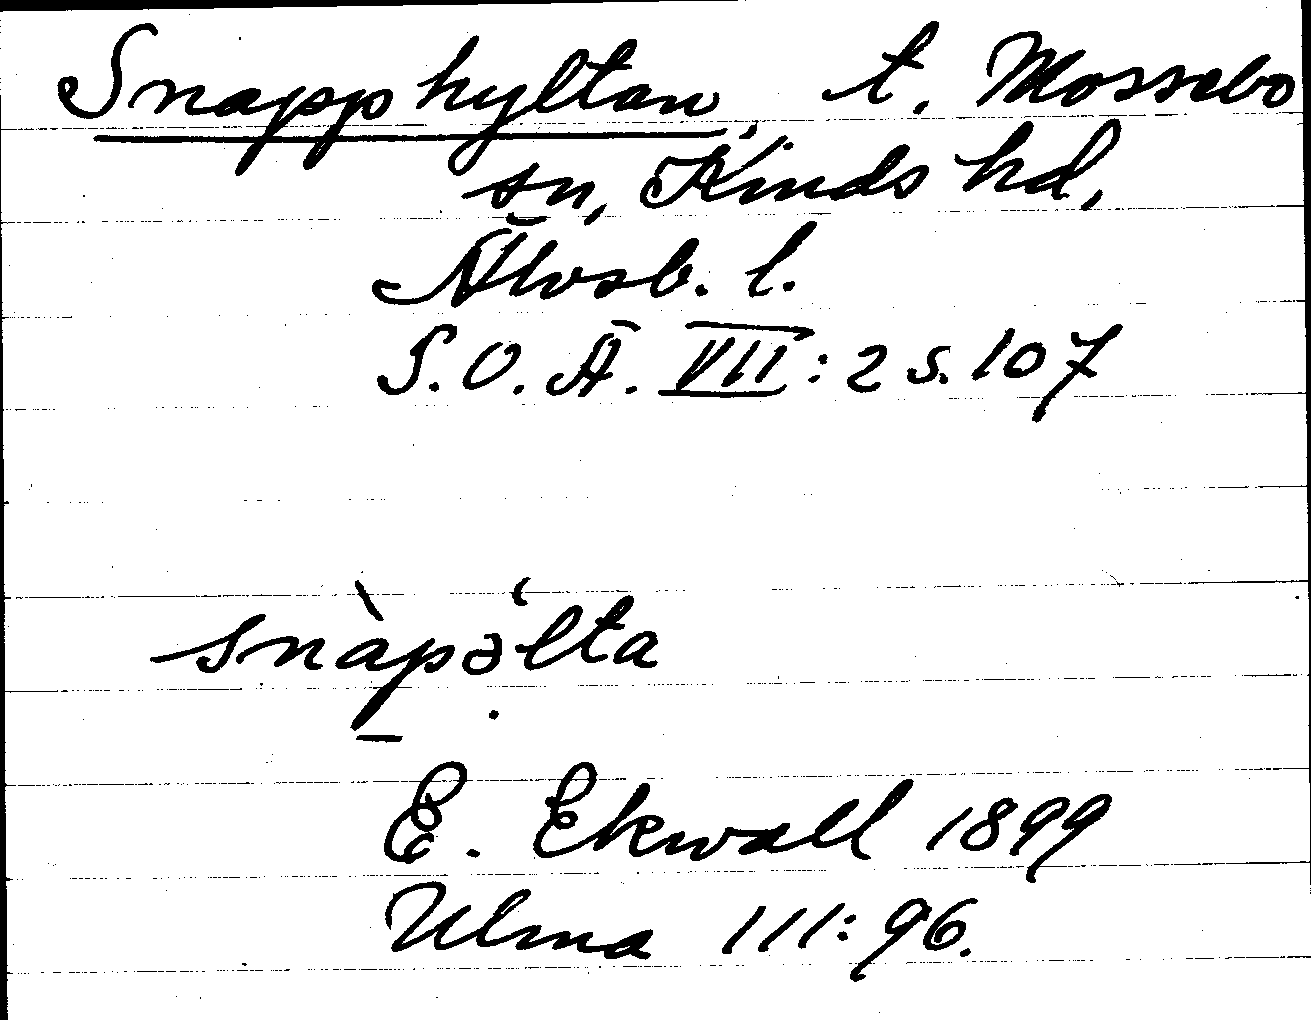 Snapphyltan, t. Mossebo
sn, Kinds hd,
Älvsb. l.
S.O.Ä. VII: 2 s. 107
snàpəlta
E. Ekwall 1899
Ulma 111: 96.